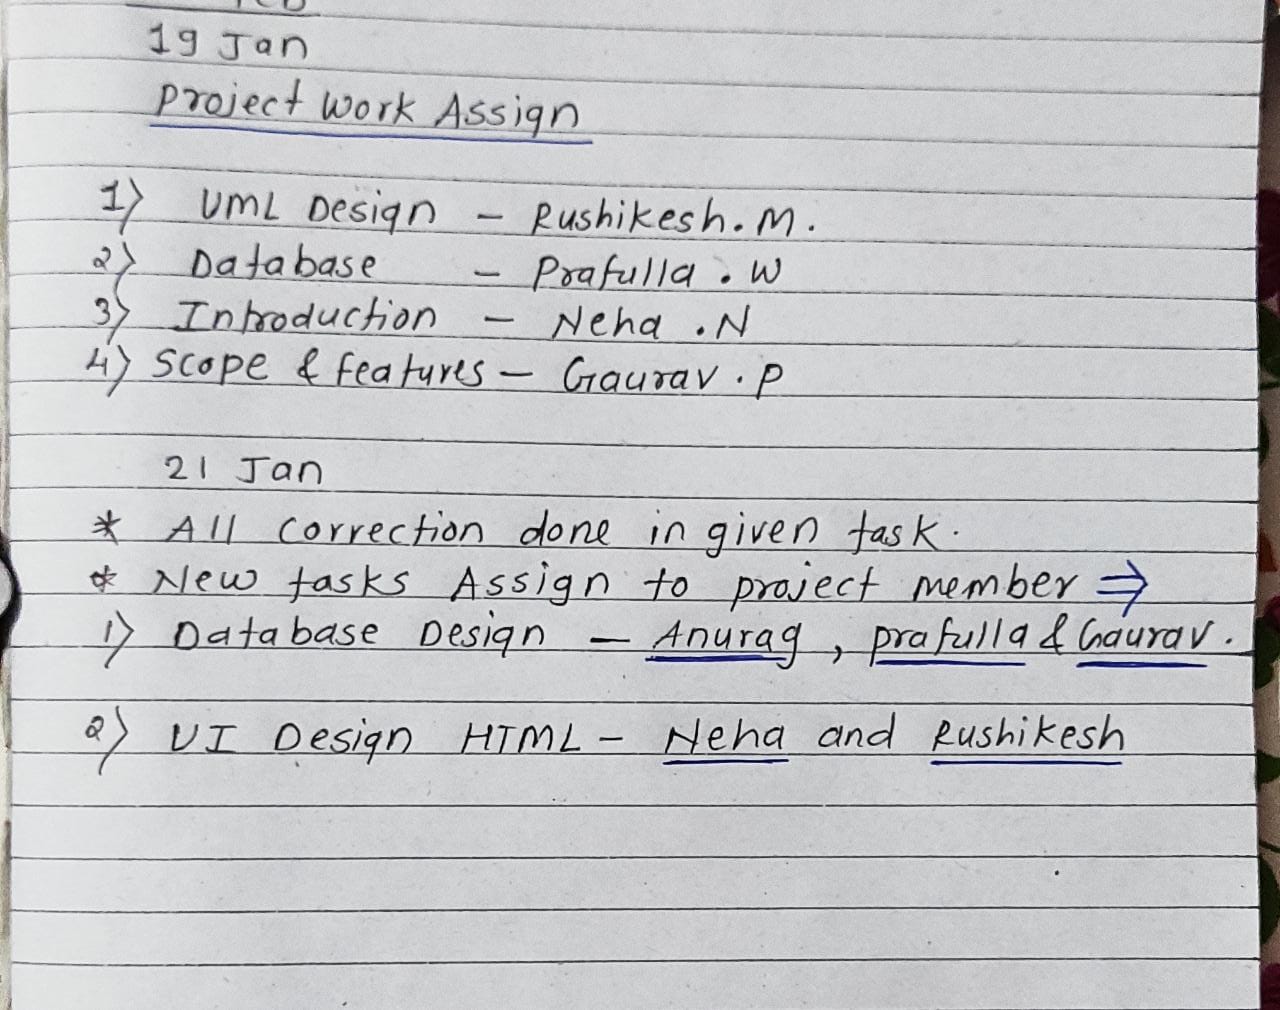 19 Jan
Project Work Assign
1) UML Design - Rushikesh.M.
2) Database - Prafulla.W
3) Introduction - Neha.N
4) Scope & features - Gaurav.P
21 Jan
* All correction done in given task.
* New tasks Assign to project member ⇒
1) Database Design - Anurag, prafulla & Gaurav.
2) UI Design HTML - Neha and Rushikesh